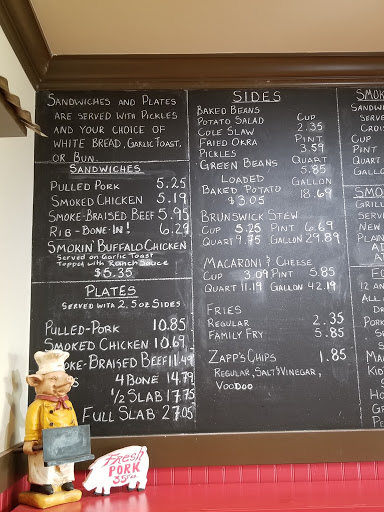 SANDWICHES AND PLATES
ARE SERVED WITH PICKLES
AND YOUR CHOICE OF
WHITE BREAD, GARLIC TOAST,
OR BUN.
SANDWICHES
PULLED PORK 5.25
SMOKED CHICKEN 5.19
SMOKE-BRAISED BEEF 5.95
RIB-BONE-IN! 6.29
SMOKIN' BUFFALO CHICKEN
Served on Garlic Toast
Topped with Ranch Sauce
$5.35
PLATES
SERVED WITH 2, 5oz SIDES
PULLED-PORK 10.85
SMOKED CHICKEN 10.69
SMOKE-BRAISED BEEF 11.49
4 BONE 14.79
1/2 SLAB 17.75
FULL SLAB 27.05
SIDES
BAKED BEANS
POTATO SALAD
COLE SLAW
FRIED OKRA
PICKLES
GREEN BEANS
CUP
2.35
PINT
3.59
QUART
5.85
GALLON
18.69
LOADED
BAKED POTATO
$3.05
BRUNSWICK STEW
CUP 5.25 PINT 6.69
QUART 9.75 GALLON 29.89
MACARONI & CHEESE
CUP 3.09 PINT 5.85
QUART 11.19 GALLON 42.19
FRIES
REGULAR 2.35
FAMILY FRY 5.85
ZAPP'S CHIPS 1.85
REGULAR, SALT & VINEGAR,
VOODOO
SMOK
SANDW
SERVE
CROIS
CUP
PINT
QUAR
GALL
SMO
GRILL
SERVE
NEW
PLAIN
12 AN
Fresh
PORK